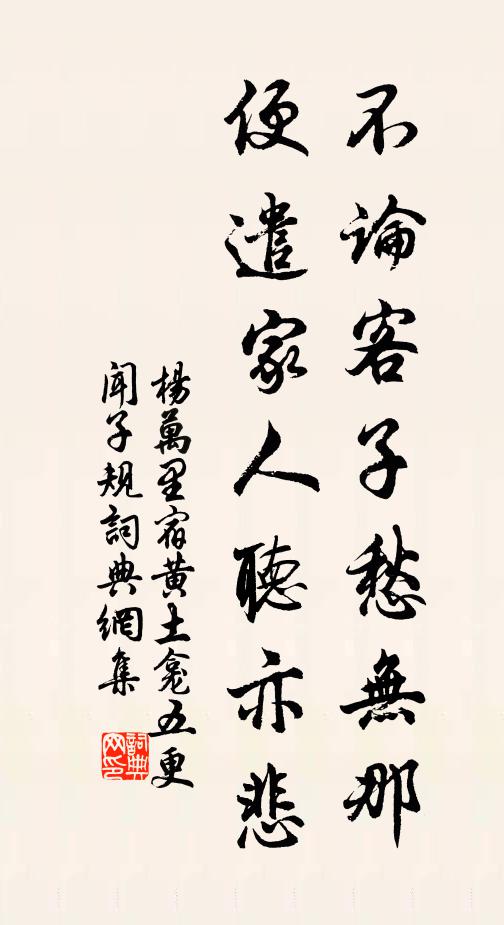 不論客子愁無那
便遣家人聽亦悲
楊萬里宿黃土龛五更
聞子規詞典網集
詞典网印